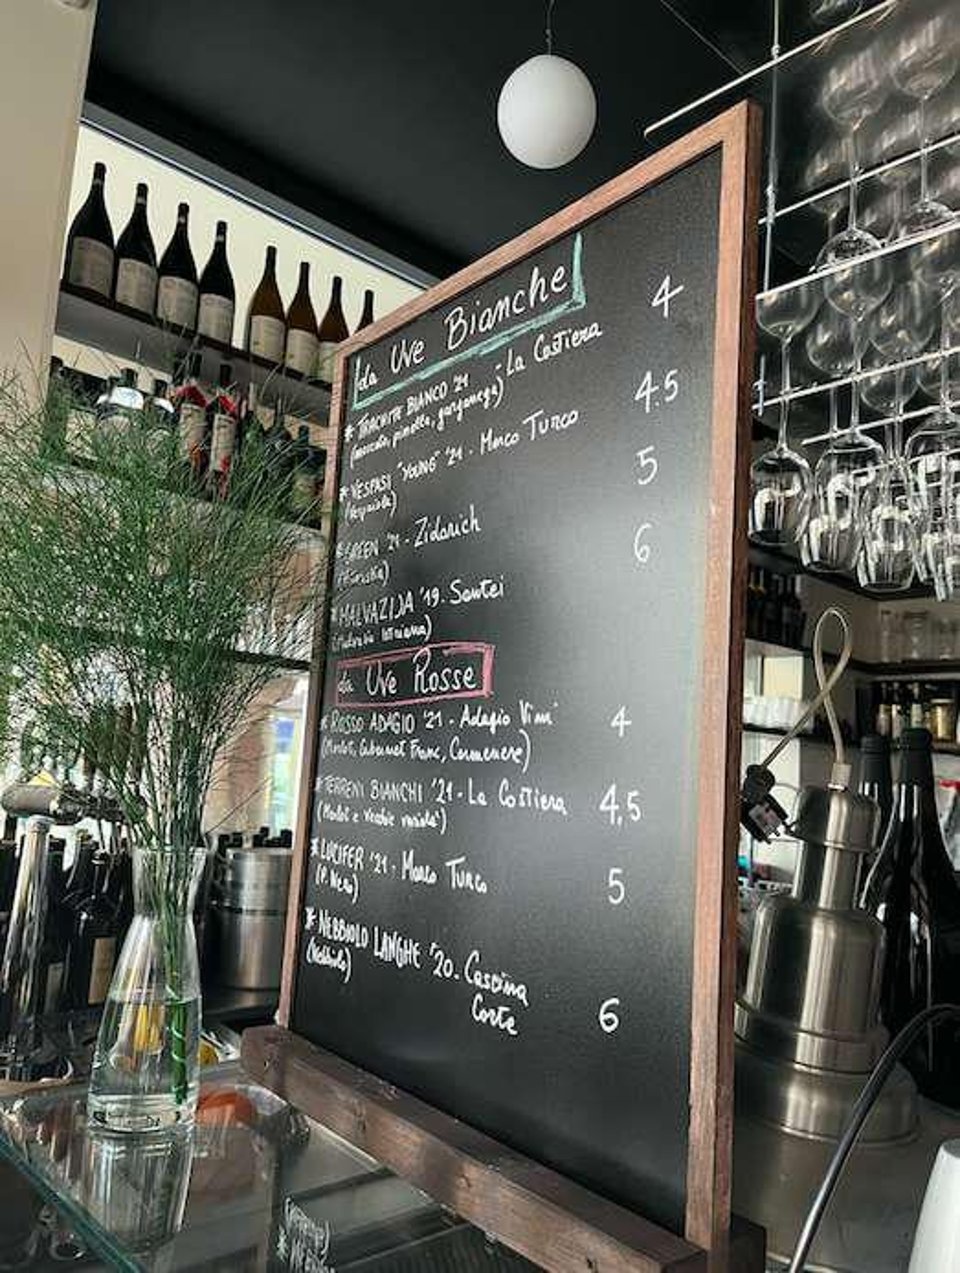 da Uve Bianche
* TRACHITE BIANCO '21 - La Costiera 4
(moscato, pinella, garganega)
* VESPASI "YOUNG" '21 - Marco Turco 4.5
(Vespaiola)
* GREEN '21 - Zidarich 5
* MALVAZIJA '19 - Santei 6
(Malvasia Istriana)
da Uve Rosse
* ROSSO ADAGIO '21 - Adagio Vini 4
(Merlot, Cabernet Franc, Carmenere)
* TERRENI BIANCHI '21 - La Costiera 4,5
(Merlot e vecchie varietà)
* LUCIFER '21 - Marco Turco 5
(P. Nero)
* NEBBIOLO LANGHE '20 - Cascina
Corte 6
(Nebbiolo)